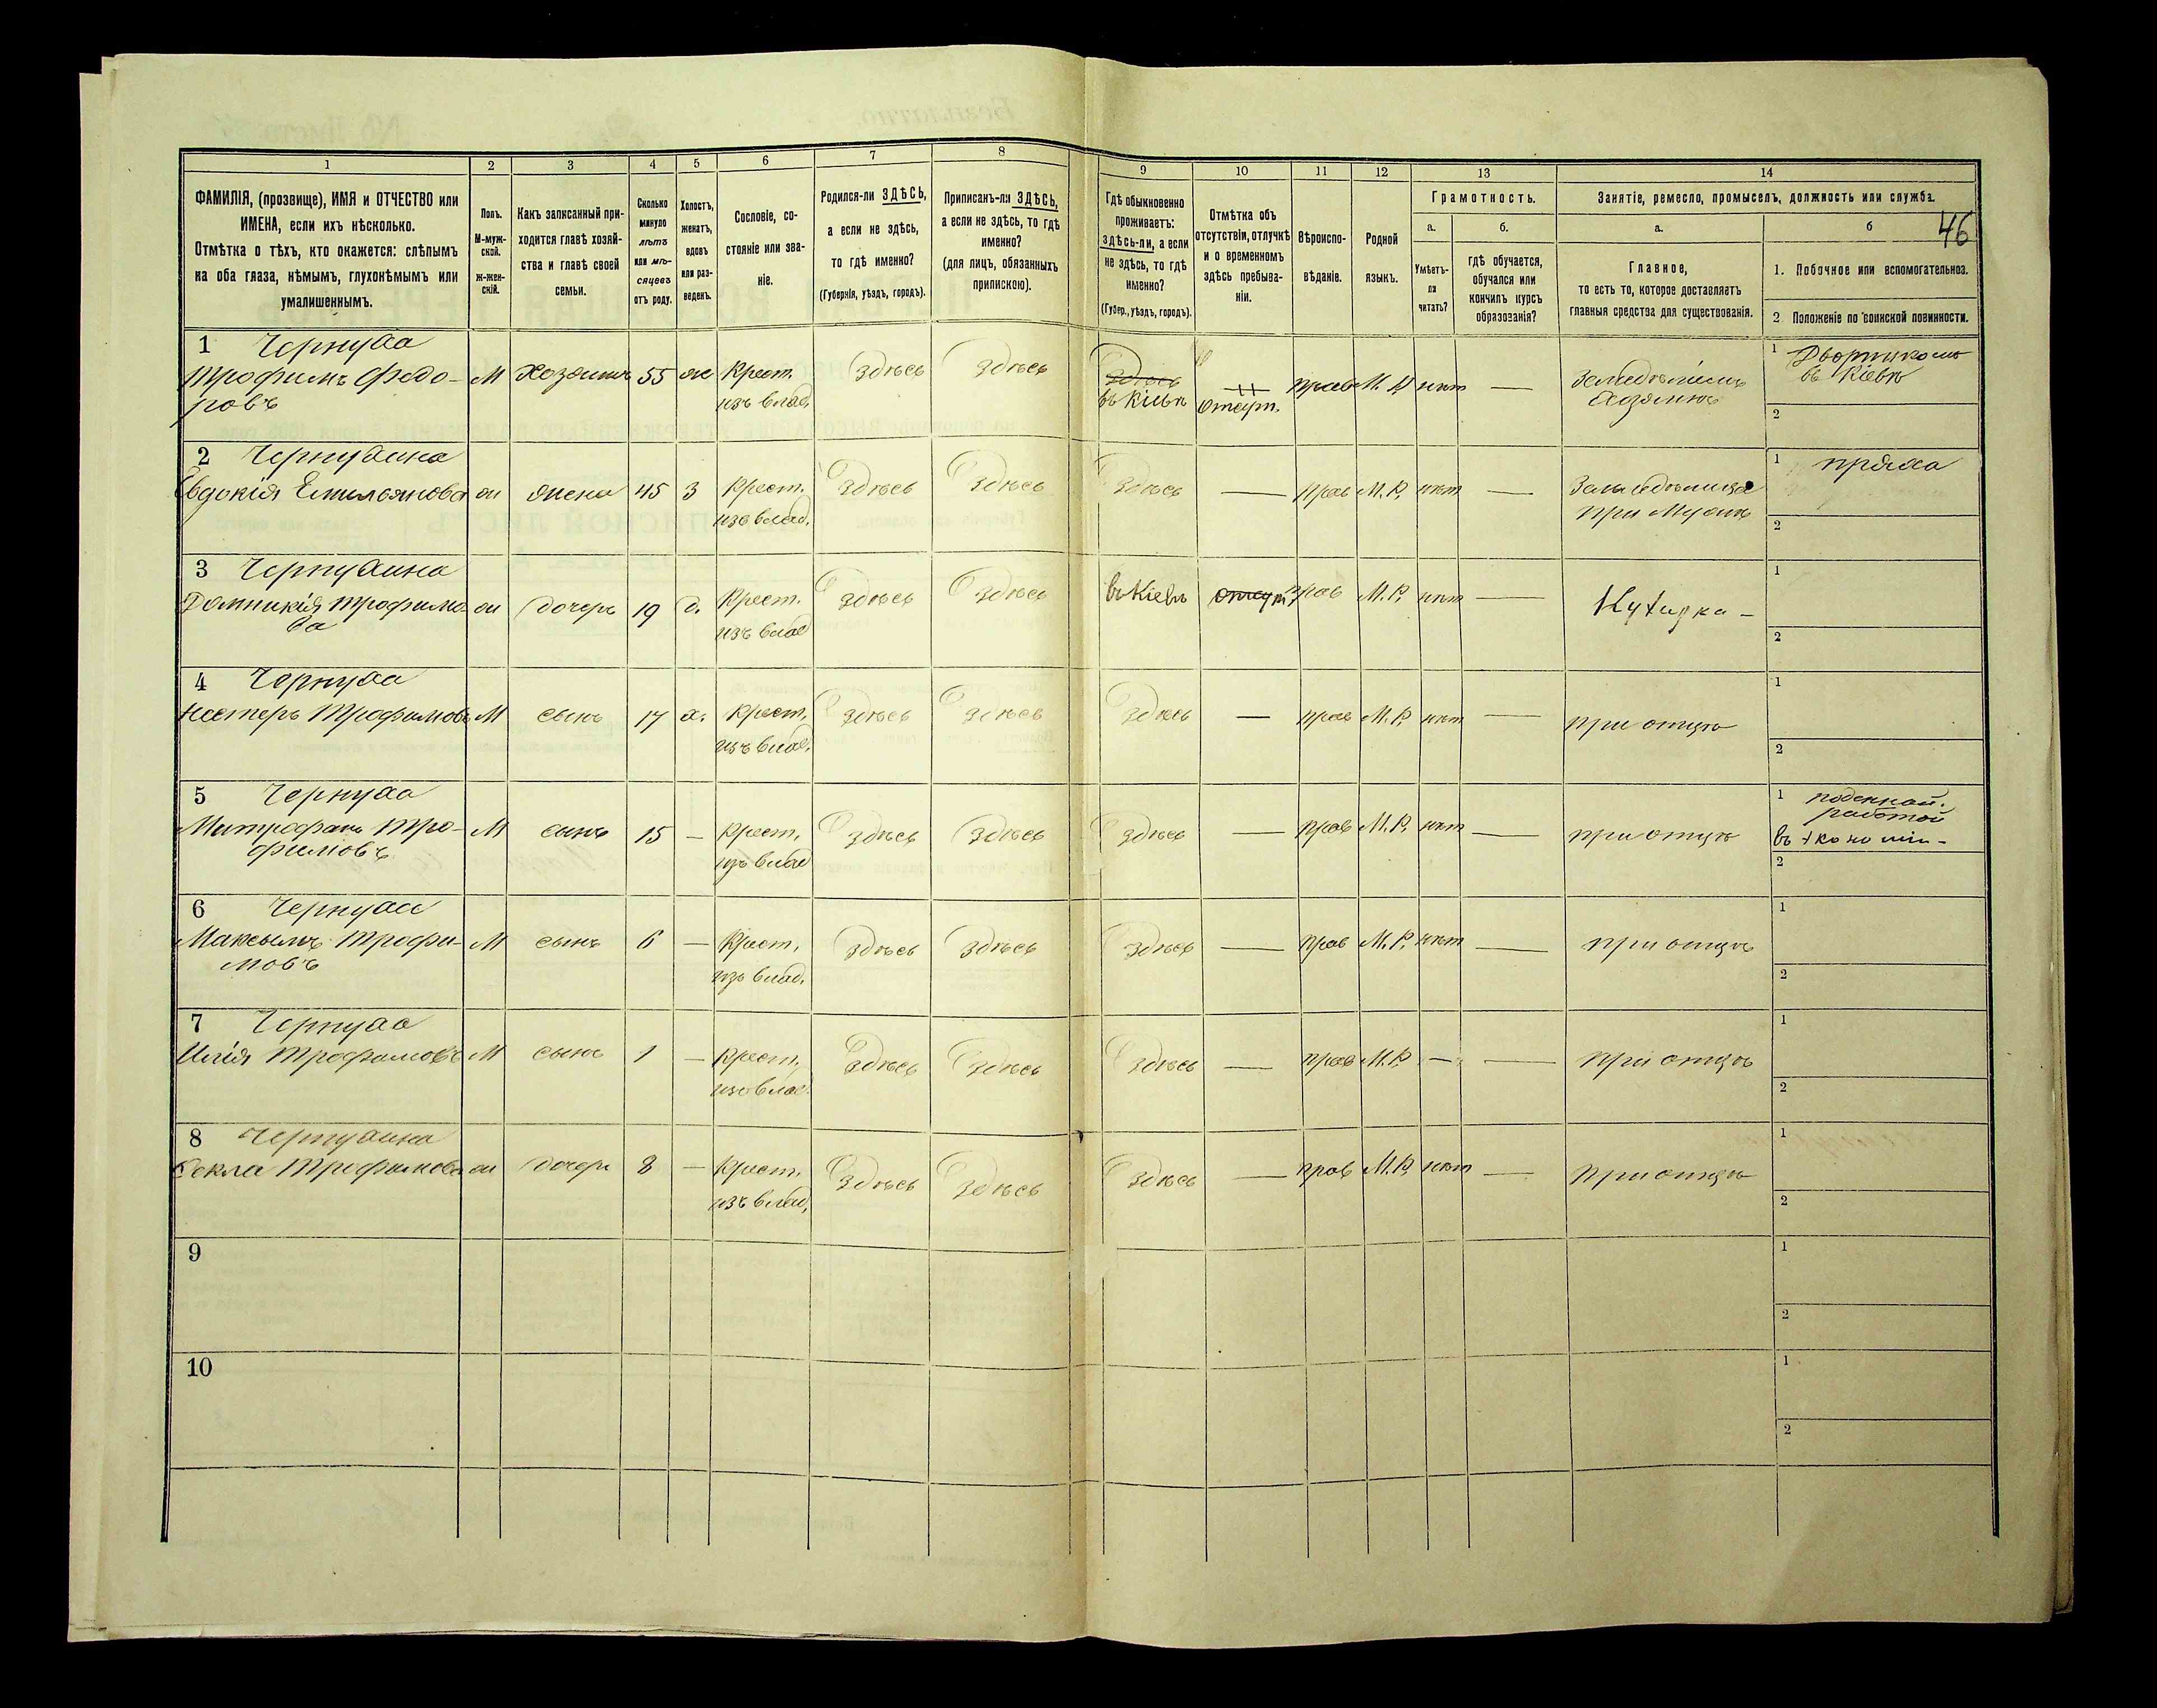 46
1 2 3 4 5 6 7 8 9 10 11 12 13 14
ФАМИЛІЯ, (прозвище), ИМЯ и ОТЧЕСТВО или
ИМЕНА, если ихъ нѣсколько.
Отмѣтка о тѣхъ, кто окажется: слѣпымъ
на оба глаза, нѣмымъ, глухонѣмымъ или
умалишеннымъ.
Полъ.
М-муж-
ской.
ж-жен-
скій.
Какъ записанный при-
ходится главѣ хозяй-
ства и главѣ своей
семьи.
Сколько
минуло
лѣтъ
или мѣ-
сяцевъ
отъ роду.
Холостъ,
женатъ,
вдовъ
или раз-
веденъ.
Сословіе, со-
стояніе или зва-
ніе.
Родился-ли ЗДѢСЬ,
а если не здѣсь,
то гдѣ именно?
(Губернія, уѣздъ, городъ).
Приписанъ-ли ЗДѢСЬ,
а если не здѣсь, то гдѣ
именно?
(для лицъ, обязанныхъ
припискою).
Гдѣ обыкновенно
проживаетъ:
ЗДѢСЬ-ли, а если
не здѣсь, то гдѣ
именно?
(Губер., уѣздъ, городъ).
Отмѣтка объ
отсутствіи, отлучкѣ
и о временномъ
здѣсь пребыва-
ніи.
Вѣроиспо-
вѣданіе.
Родной
языкъ.
Грамотность.
а.
Умѣетъ-
ли
читать?
б.
гдѣ обучается,
обучался или
кончилъ курсъ
образованія?
Занятіе, ремесло, промыселъ, должность или служба.
а.
Главное,
то есть то, которое доставляетъ
главныя средства для существованія.
б
1. Побочное или вспомогательное.
2 Положеніе по воинской повинности.
1 Чернуха
Трофимъ Федо-
ровъ
М Хозяинъ 55 ж Крест.
изъ влад.
Здѣсь Здѣсь Здѣсь
въ Кіевѣ
отсут.
прав М. Р. нѣт —
Земледѣлецъ
Хозяинъ
1 Дворникомъ
въ Кіевѣ
2
2 Чернухина
Евдокія Емильянова ж жена 45 з Крест.
изъ влад.
Здѣсь Здѣсь Здѣсь — прав М. Р. нѣт —
Земледѣлица
при Мужѣ
1 пряха
2
3 Чернухина
Домникія Трофимо-
ва
ж дочерь 19 д. Крест.
изъ влад
Здѣсь Здѣсь въ Кіевѣ отсут. прав М. Р. нѣт —
1
2
4 Чернуха
Нестеръ Трофимовъ М сынъ 17 х. Крест.
изъ влад.
Здѣсь Здѣсь Здѣсь — прав М. Р. нѣт — при отцѣ
1
2
5 Чернуха
Митрофанъ Тро-
фимовъ
М сынъ 15 — Крест.
изъ влад
Здѣсь Здѣсь Здѣсь — прав М. Р. нѣт — при отцѣ
1 поденной
работой
2
6 Чернуха
Максымъ Трофи-
мовъ
М сынъ 6 — Крест.
изъ влад.
Здѣсь Здѣсь Здѣсь — прав М. Р. нѣт — при отцѣ
1
2
7 Чернуха
Илія Трофимовъ М сынъ 1 — Крест.
изъ влад.
Здѣсь Здѣсь Здѣсь — прав М. Р. — — при отцѣ
1
2
8 Чернухина
Фекла Трофимова ж дочерь 8 — Крест.
изъ влад.
Здѣсь Здѣсь Здѣсь — прав М. Р. нѣт — при отцѣ
1
2
9
1
2
10
1
2